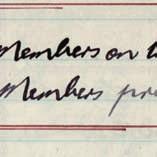 Members on
Members